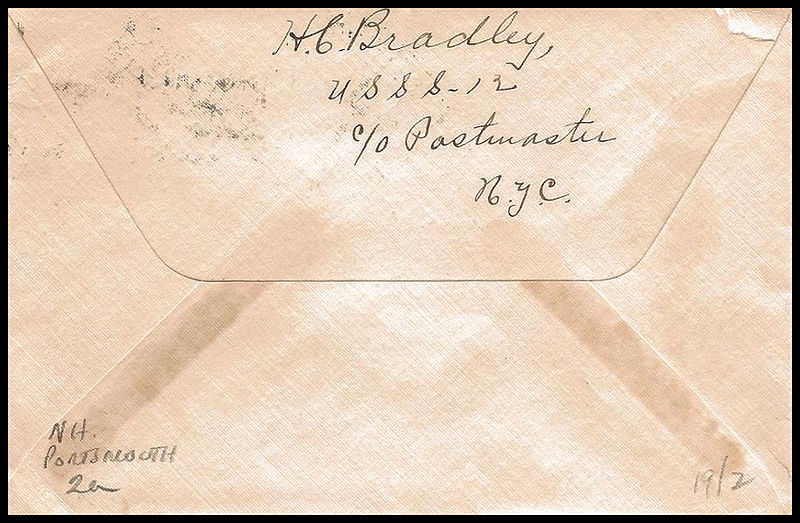 H.C. Bradley,
U S S S-12
c/o Postmaster
N.Y.C.
N.H.
PORTSMOUTH
2a
19/2